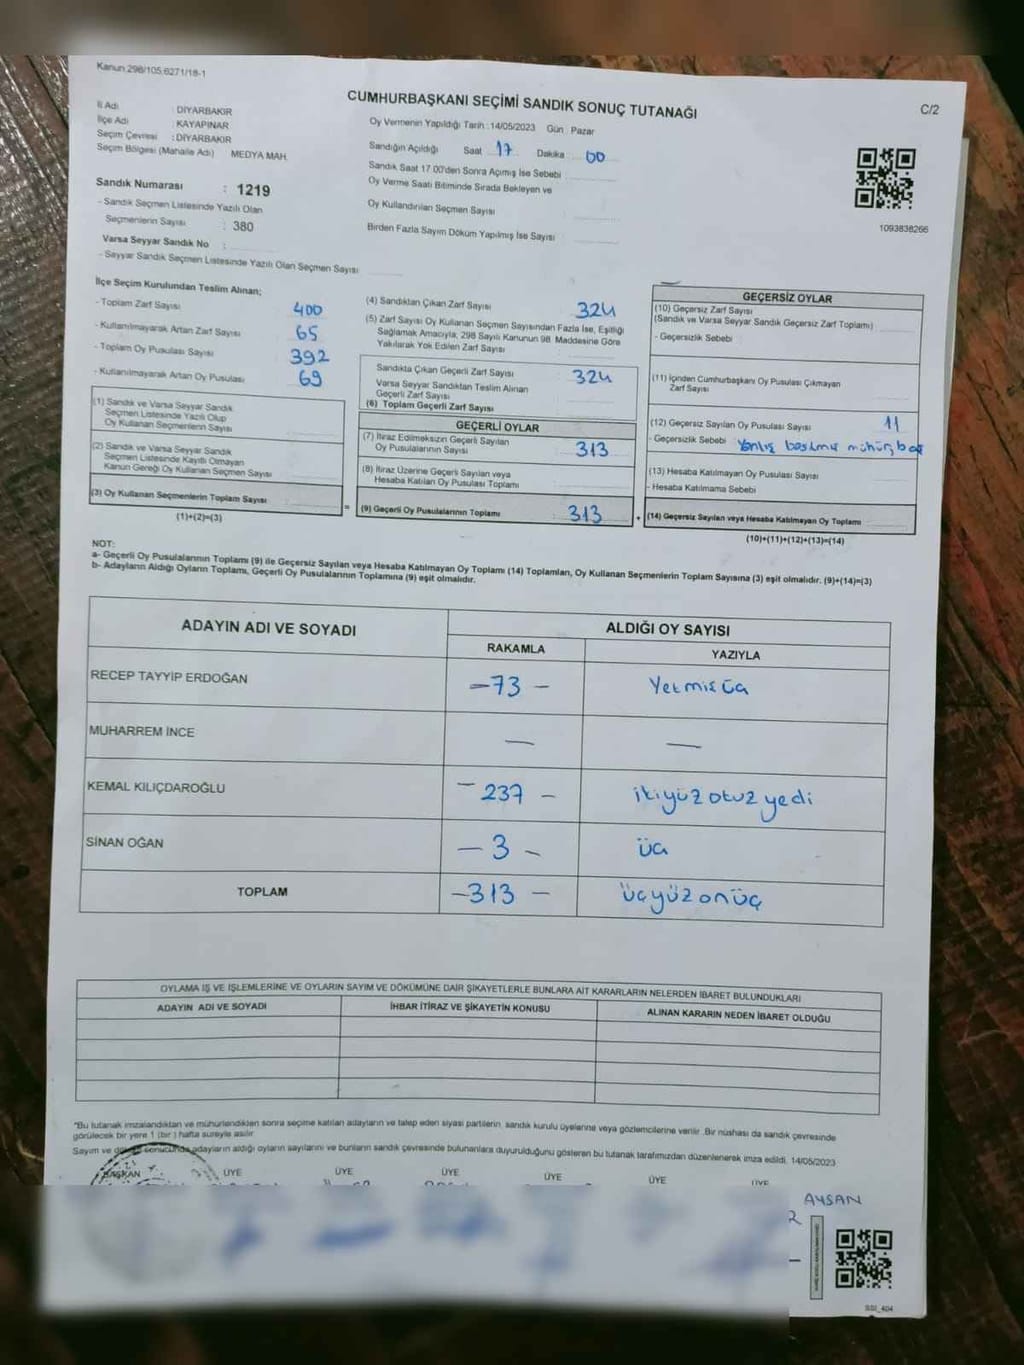 Kanun:298/105,6271/18-1
C/2
CUMHURBAŞKANI SEÇİMİ SANDIK SONUÇ TUTANAĞI
İli Adı : DİYARBAKIR
İlçe Adı : KAYAPINAR
Seçim Çevresi : DİYARBAKIR
Seçim Bölgesi (Mahalle Adı) MEDYA MAH.
Oy Vermenin Yapıldığı Tarih : 14/05/2023 Gün : Pazar
Sandığın Açıldığı Saat 17 Dakika 00
Sandık Saat 17.00'den Sonra Açımış İse Sebebi
Oy Verme Saati Bitiminde Sırada Bekleyen ve
Oy Kullandırılan Seçmen Sayısı
Birden Fazla Sayım Döküm Yapılmış İse Sayısı
1093838266
Sandık Numarası : 1219
- Sandık Seçmen Listesinde Yazılı Olan
Seçmenlerin Sayısı : 380
Varsa Seyyar Sandık No :
- Seyyar Sandık Seçmen Listesinde Yazılı Olan Seçmen Sayısı
İlçe Seçim Kurulundan Teslim Alınan;
- Toplam Zarf Sayısı 400
- Kullanılmayarak Artan Zarf Sayısı 65
- Toplam Oy Pusulası Sayısı 392
- Kullanılmayarak Artan Oy Pusulası 69
(1) Sandık ve Varsa Seyyar Sandık
Seçmen Listesinde Yazılı Olup
Oy Kullanan Seçmenlerin Sayısı
(2) Sandık ve Varsa Seyyar Sandık
Seçmen Listesinde Kayıtlı Olmayan
Kanun Gereği Oy Kullanan Seçmen Sayısı
(3) Oy Kullanan Seçmenlerin Toplam Sayısı
(1)+(2)=(3)
(4) Sandıktan Çıkan Zarf Sayısı 324
(5) Zarf Sayısı Oy Kullanan Seçmen Sayısından Fazla İse, Eşitliği
Sağlamak Amacıyla, 298 Sayılı Kanunun 98. Maddesine Göre
Yakılarak Yok Edilen Zarf Sayısı
Sandıkta Çıkan Geçerli Zarf Sayısı 324
Varsa Seyyar Sandıktan Teslim Alınan
Geçerli Zarf Sayısı
(6) Toplam Geçerli Zarf Sayısı
GEÇERLİ OYLAR
(7) İtiraz Edilmeksizin Geçerli Sayılan
Oy Pusulalarının Sayısı 313
(8) İtiraz Üzerine Geçerli Sayılan veya
Hesaba Katılan Oy Pusulası Toplamı
= (9) Geçerli Oy Pusulalarının Toplamı : 313
GEÇERSİZ OYLAR
(10) Geçersiz Zarf Sayısı
(Sandık ve Varsa Seyyar Sandık Geçersiz Zarf Toplamı)
- Geçersizlik Sebebi
(11) İçinden Cumhurbaşkanı Oy Pusulası Çıkmayan
Zarf Sayısı
(12) Geçersiz Sayılan Oy Pusulası Sayısı 11
- Geçersizlik Sebebi
(13) Hesaba Katılmayan Oy Pusulası Sayısı
- Hesaba Katılmama Sebebi
+ (14) Geçersiz Sayılan veya Hesaba Katılmayan Oy Toplamı
(10)+(11)+(12)+(13)=(14)
NOT:
a- Geçerli Oy Pusulalarının Toplamı (9) ile Geçersiz Sayılan veya Hesaba Katılmayan Oy Toplamı (14) Toplamları, Oy Kullanan Seçmenlerin Toplam Sayısına (3) eşit olmalıdır. (9)+(14)=(3)
b- Adayların Aldığı Oyların Toplamı, Geçerli Oy Pusulalarının Toplamına (9) eşit olmalıdır.
ADAYIN ADI VE SOYADI ALDIĞI OY SAYISI
RAKAMLA YAZIYLA
RECEP TAYYİP ERDOĞAN -73- Yetmiş üç
MUHARREM İNCE — —
KEMAL KILIÇDAROĞLU -237- ikiyüz otuz yedi
SİNAN OĞAN -3- üç
TOPLAM -313- üçyüz onüç
OYLAMA İŞ VE İŞLEMLERİNE VE OYLARIN SAYIM VE DÖKÜMÜNE DAİR ŞİKAYETLERLE BUNLARA AİT KARARLARIN NELERDEN İBARET BULUNDUKLARI
ADAYIN ADI VE SOYADI İHBAR İTİRAZ VE ŞİKAYETİN KONUSU ALINAN KARARIN NEDEN İBARET OLDUĞU
*Bu tutanak imzalandıktan ve mühürlendikten sonra seçime katılan adayların ve talep eden siyasi partilerin, sandık kurulu üyelerine veya gözlemcilerine verilir. Bir nüshası da sandık çevresinde
görülecek bir yere 1 (bir) hafta süreyle asılır.
Sayım ve döküm sonucunda adayların aldığı oyların sayılarını ve bunların sandık çevresinde bulunanlara duyurulduğunu gösteren bu tutanak tarafımızdan düzenlenerek imza edildi. 14/05/2023
BAŞKAN ÜYE ÜYE ÜYE ÜYE ÜYE ÜYE
AYSAN
SSI_404